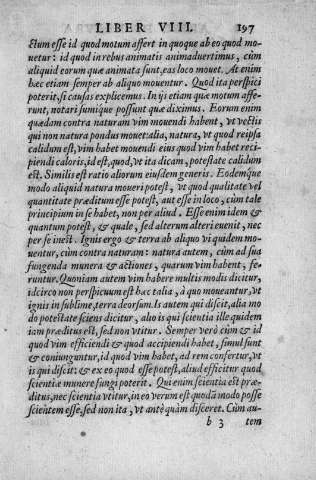 LIBER VIII. 197
ctum esse id quod motum affert in quoque ab eo quod mo-
uetur: id quod in rebus animatis animaduertimus, cùm
aliquid eorum quæ animata sunt, eas loco mouet. At enim
hæc etiam semper ab aliquo mouentur. Quod ita perspici
poterit, si causas explicemus. In ijs etiam quæ motum affe-
runt, notari sumique possunt quæ diximus. Eorum enim
quædam contra naturam vim mouendi habent, vt vectis
qui non natura pondus mouet: alia, natura, vt quod reipsa
calidum est, vim habet mouendi eius quod vim habet reci-
piendi caloris, id est, quod, vt ita dicam, potestate calidum
est. Similis est ratio aliorum eiusdem generis. Eodemque
modo aliquid natura moueri potest, vt quod qualitate vel
quantitate præditum esse potest, aut esse in loco, cùm tale
principium in se habet, non per aliud. Esse enim idem &
quantum potest, & quale, sed alterum alteri euenit, nec
per se inest. Ignis ergo & terra ab aliquo vi quidem mo-
uentur, cùm contra naturam: natura autem, cùm ad sua
fungenda munera & actiones, quarum vim habent, fe-
runtur. Quoniam autem vim habere multis modis dicitur,
idcirco non perspicuum est hæc talia, à quo moueantur, vt
ignis in sublime, terra deorsum. Is autem qui discit, alia mo
do potestate sciens dicitur, alio is qui scientia ille quidem
iam præditus est, sed non vtitur. Semper verò cùm & id
quod vim efficiendi & quod accipiendi habet, simul sunt
& coniunguntur, id quod vim habet, ad rem confertur, vt
is qui discit: & ex eo quod esse potest, aliud efficitur quod
scientiæ munere fungi poterit. Qui enim scientia est præ-
ditus, nec scientia vtitur, in eo verum est quodã modo posse
scientem esse, sed non ita, vt antè quàm disceret. Cùm au-
b 3 tem